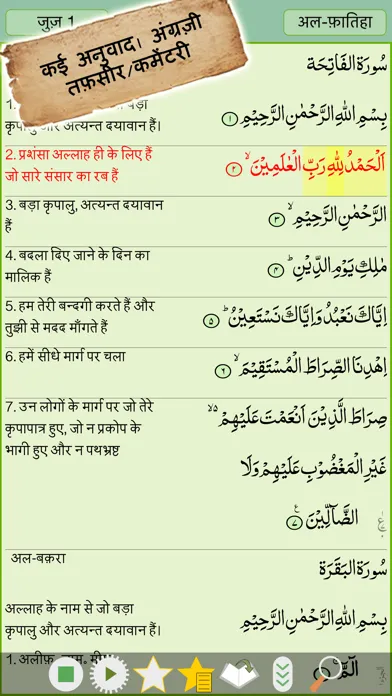 जुज़ 1
अल-फ़ातिहा
कई अनुवाद। अंग्रज़ी
तफ़सीर/कमेंटरी
سُورَةُ الْفَاتِحَة
कृपालु और अत्यन्त दयावान हैं।
بِسْمِ اللهِ الرَّحْمٰنِ الرَّحِيْمِ ۝١
2. प्रशंसा अल्लाह ही के लिए हैं
जो सारे संसार का रब हैं
اَلْحَمْدُ لِلّٰهِ رَبِّ الْعٰلَمِيْنَ ۙ ۝٢
3. बड़ा कृपालु, अत्यन्त दयावान
हैं
الرَّحْمٰنِ الرَّحِيْمِ ۙ ۝٣
4. बदला दिए जाने के दिन का
मालिक हैं
مٰلِكِ يَوْمِ الدِّيْنِ ؕ ۝٤
5. हम तेरी बन्दगी करते हैं और
तुझी से मदद माँगते हैं
اِيَّاكَ نَعْبُدُ وَاِيَّاكَ نَسْتَعِيْنُ ؕ ۝٥
6. हमें सीधे मार्ग पर चला
اِهْدِنَا الصِّرَاطَ الْمُسْتَقِيْمَ ۙ ۝٦
7. उन लोगों के मार्ग पर जो तेरे
कृपापात्र हुए, जो न प्रकोप के
भागी हुए और न पथभ्रष्ट
صِرَاطَ الَّذِيْنَ اَنْعَمْتَ عَلَيْهِمْ ۙ
غَيْرِ الْمَغْضُوْبِ عَلَيْهِمْ وَلَا
الضَّآلِّيْنَ ۝٧
अल-बक़रा
سُورَةُ الْبَقَرَة
अल्लाह के नाम से जो बड़ा
कृपालु और अत्यन्त दयावान हैं।
بِسْمِ اللهِ الرَّحْمٰنِ الرَّحِيْمِ
1. अलीफ़॰ लाम॰ मी
الٓمّٓ